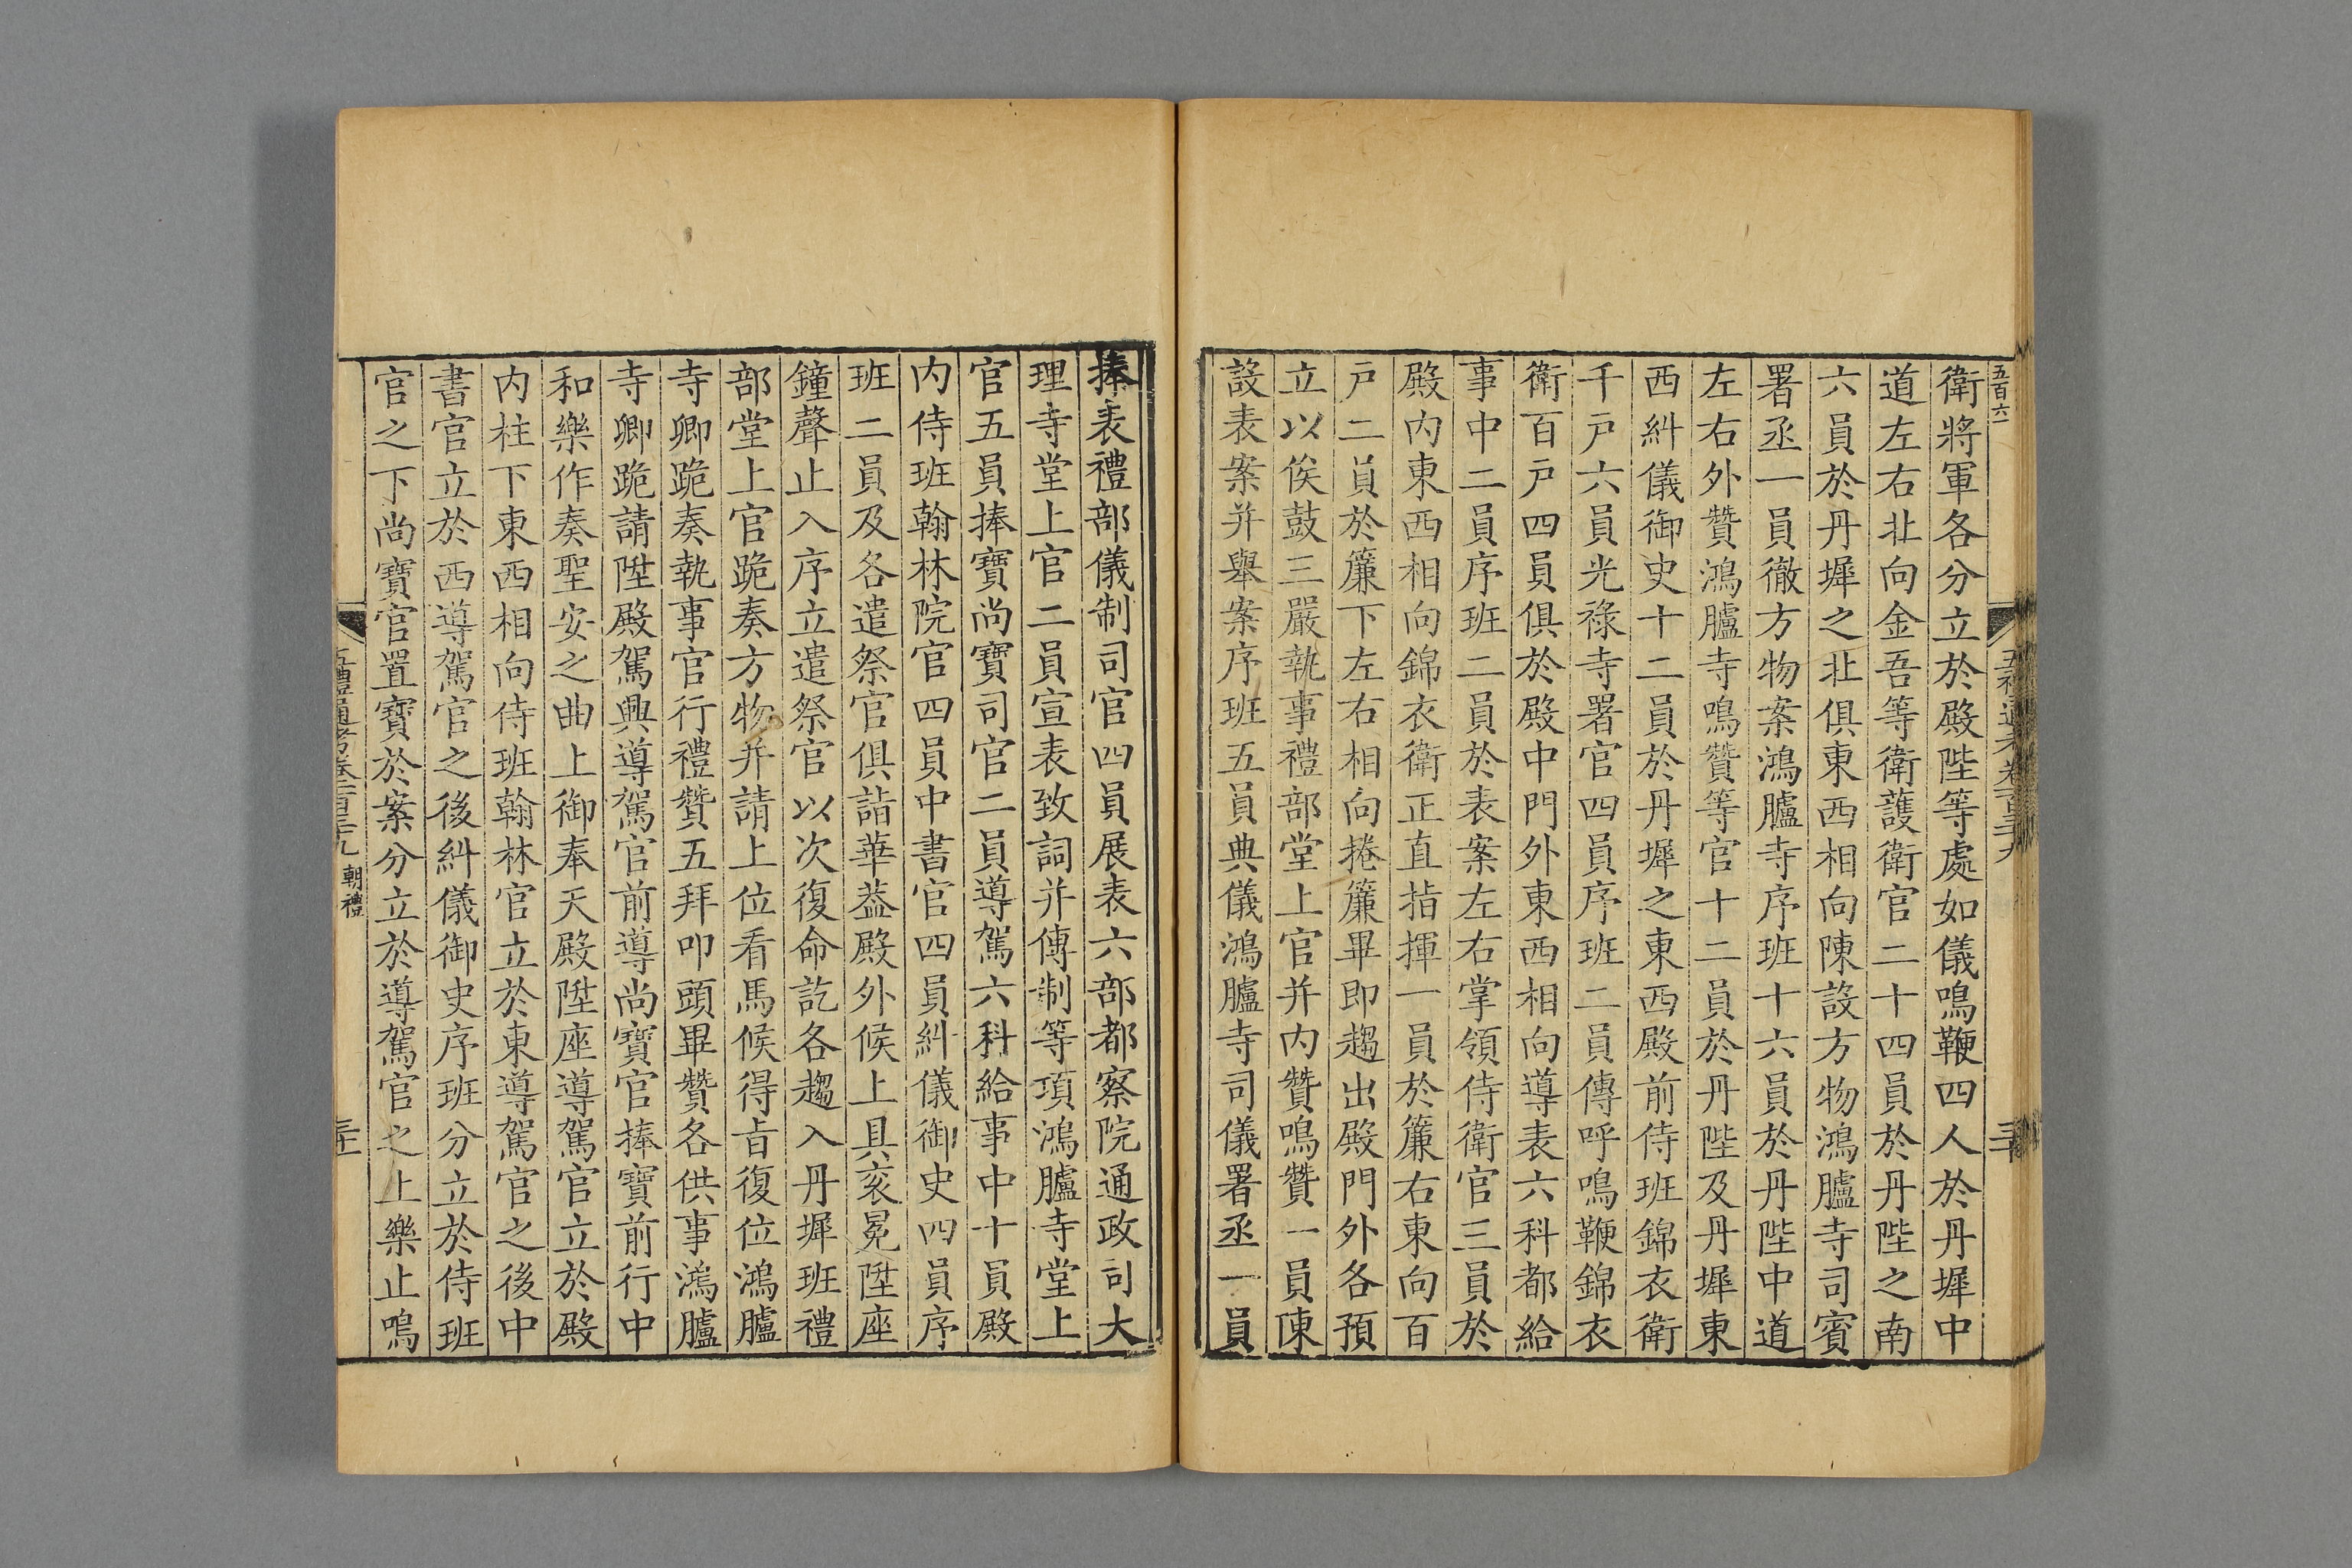 五百六
衛將軍各分立於殿陛等處如儀鳴鞭四人於丹墀中
道左右北向金吾等衛護衛官二十四員於丹陛之南
六員於丹墀之北俱東西相向陳設方物鴻臚寺司賓
署丞一員徹方物案鴻臚寺序班十六員於丹陛中道
左右外贊鴻臚寺鳴贊等官十二員於丹陛及丹墀東
西糾儀御史十二員於丹墀之東西殿前侍班錦衣衛
千戸六員光祿寺署官四員序班二員傳呼鳴鞭錦衣
衛百戸四員俱於殿中門外東西相向導表六科都給
事中二員序班二員於表案左右掌領侍衛官三員於
殿內東西相向錦衣衛正直指揮一員於簾右東向百
戸二員於簾下左右相向捲簾畢即趨出殿門外各預
立以俟鼓三嚴執事禮部堂上官并內贊鳴贊一員陳
設表案并舉案序班五員典儀鴻臚寺司儀署丞一員
捧表禮部儀制司官四員展表六部都察院通政司大
理寺堂上官二員宣表致詞并傳制等項鴻臚寺堂上
官五員捧寶尚寶司官二員導駕六科給事中十員殿
內侍班翰林院官四員中書官四員糾儀御史四員序
班二員及各遣祭官俱詣華葢殿外候上具袞冕陞座
鐘聲止入序立遣祭官以次復命訖各趨入丹墀班禮
部堂上官跪奏方物并請上位看馬候得㫖復位鴻臚
寺卿跪奏執事官行禮贊五拜叩頭畢贊各供事鴻臚
寺卿跪請陞殿駕興導駕官前導尚寶官捧寶前行中
和樂作奏聖安之曲上御奉天殿陞座導駕官立於殿
內柱下東西相向侍班翰林官立於東導駕官之後中
書官立於西導駕官之後糾儀御史序班分立於侍班
官之下尚寶官置寶於案分立於導駕官之上樂止鳴
五禮通考卷一百三十九 朝禮